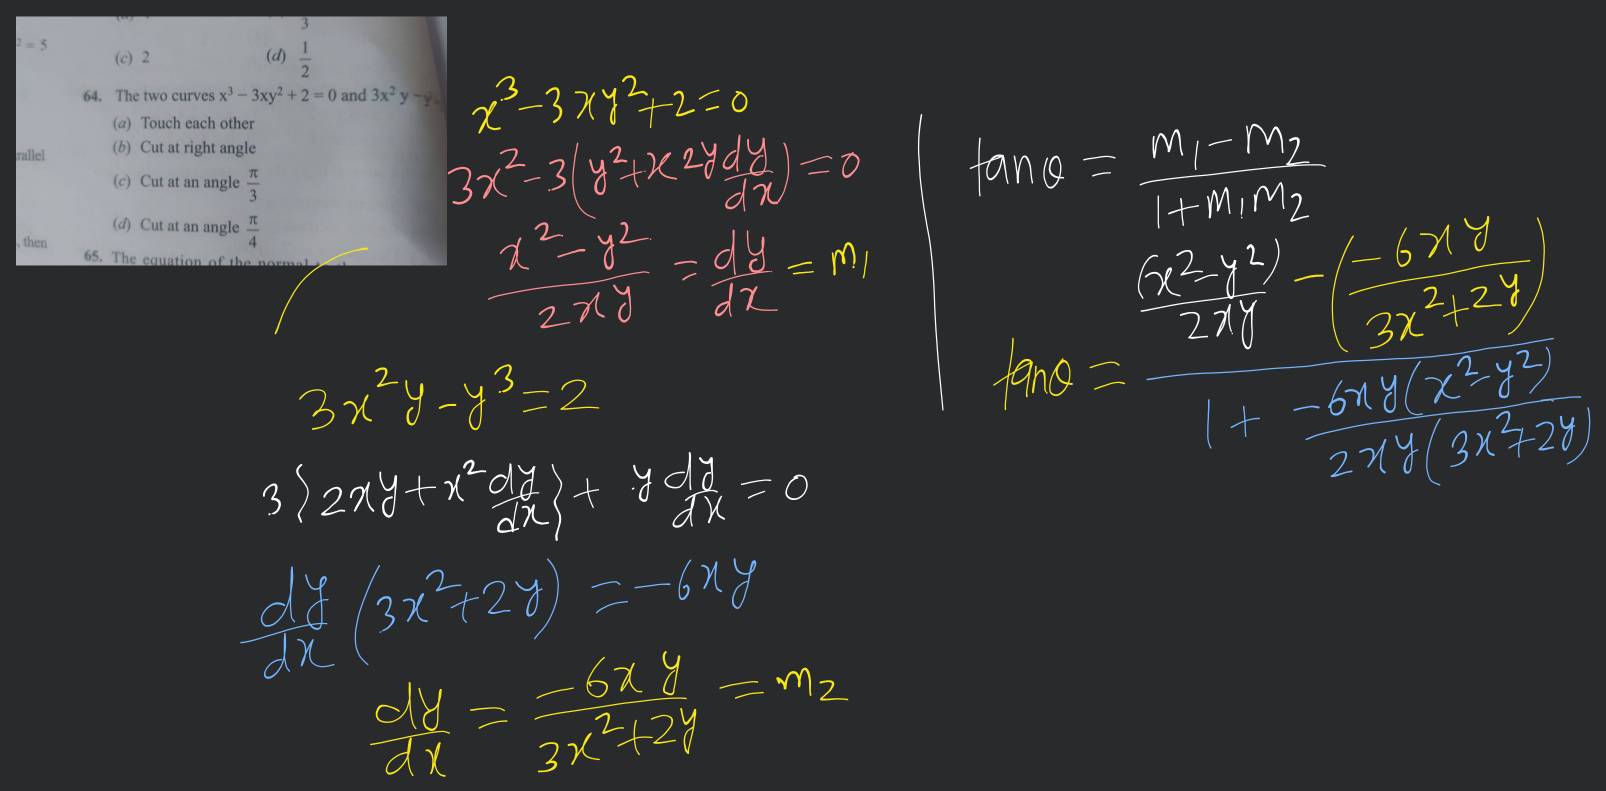 3
² = 5
(c) 2 (d) 1/2
64. The two curves x³ – 3xy² + 2 = 0 and 3x² y – y
(a) Touch each other
(b) Cut at right angle
rallel
(c) Cut at an angle π/3
(d) Cut at an angle π/4
, then
65. The equation of the normal
x³ – 3xy² + 2 = 0
3x² – 3(y² + x 2y dy/dx) = 0
x² – y² / 2xy = dy/dx = m₁
3x²y – y³ = 2
3{2xy + x² dy/dx} + y dy/dx = 0
dy/dx (3x² + 2y) = –6xy
dy/dx = –6xy / 3x² + 2y = m₂
tanθ = m₁ – m₂ / 1 + m₁m₂
tanθ = (x² – y²)/2xy – (–6xy / 3x² + 2y) / 1 + –6xy(x² – y²) / 2xy(3x² + 2y)